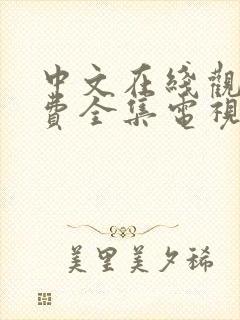 中文在綫觀
費全集電視
美里美夕稀